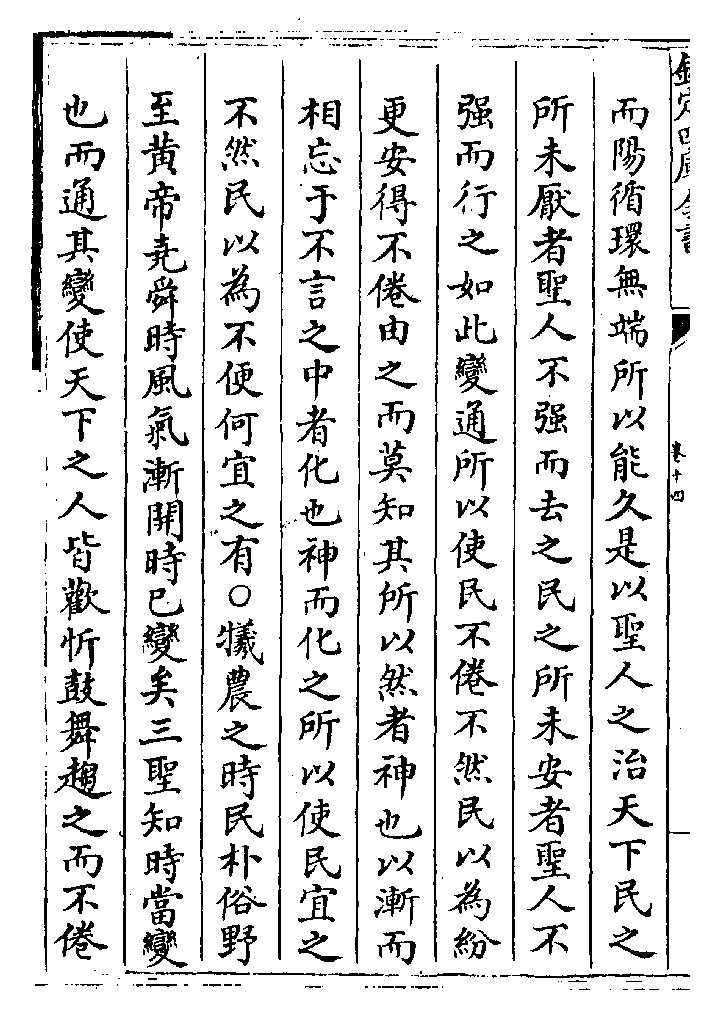 欽定四庫全書
卷十四
而陽循環無端所以能久是以聖人之治天下民之
所未厭者聖人不强而去之民之所未安者聖人不
强而行之如此變通所以使民不倦不然民以為紛
更安得不倦由之而莫知其所以然者神也以漸而
相忘于不言之中者化也神而化之所以使民宜之
不然民以為不便何宜之有○犧農之時民朴俗野
至黄帝堯舜時風氣漸開時已變矣三聖知時當變
也而通其變使天下之人皆歡忻鼓舞趨之而不倦